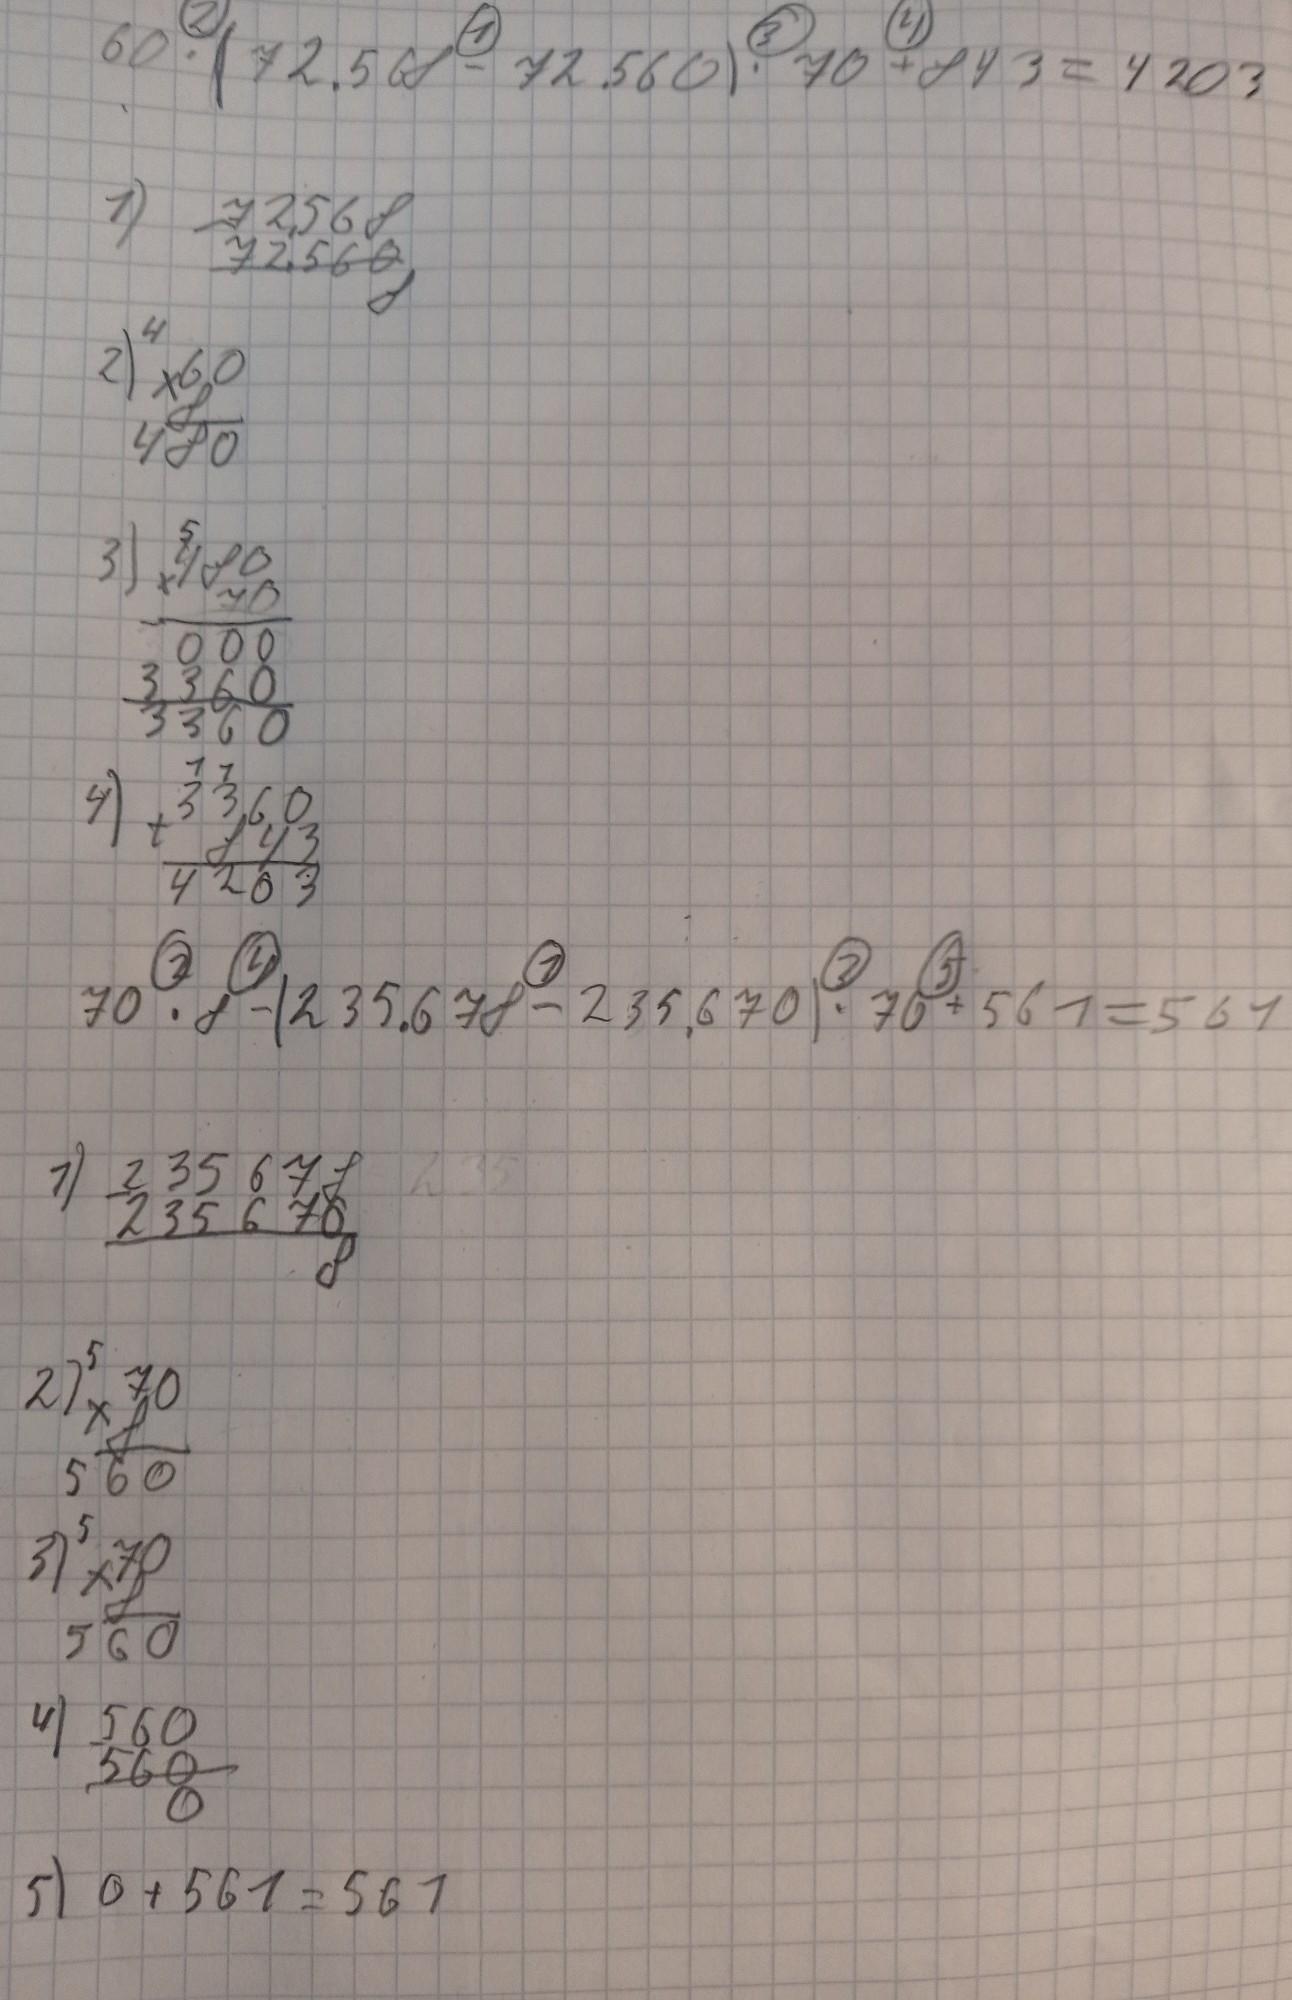 60 · (72.568 - 72.560) · 70 + 843 = 4203
② ① ③ ④
1) 72.568
72.560
8
2) 4
× 60
8
480
3) 5
× 480
70
000
3360
3360
4) 1 1
3360
+ 843
4203
③ ④ ① ② ⑤
70 · 8 - (235.678 - 235.670) · 70 + 561 = 561
1) 235 678 235
235 670
8
2) 5
× 70
8
560
3) 5
× 70
8
560
4) 560
560
0
5) 0 + 561 = 561